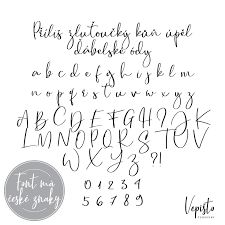 Příliš žluťoučký kůň úpěl
ďábelské ódy
a b c d e f g h i j k l m
n o p q r s t u v w x y z
A B C D E F G H I J K
L M N O P Q R S T U V
W X Y Z ?!
0 1 2 3 4
5 6 7 8 9
Font má
české znaky
Vepisto